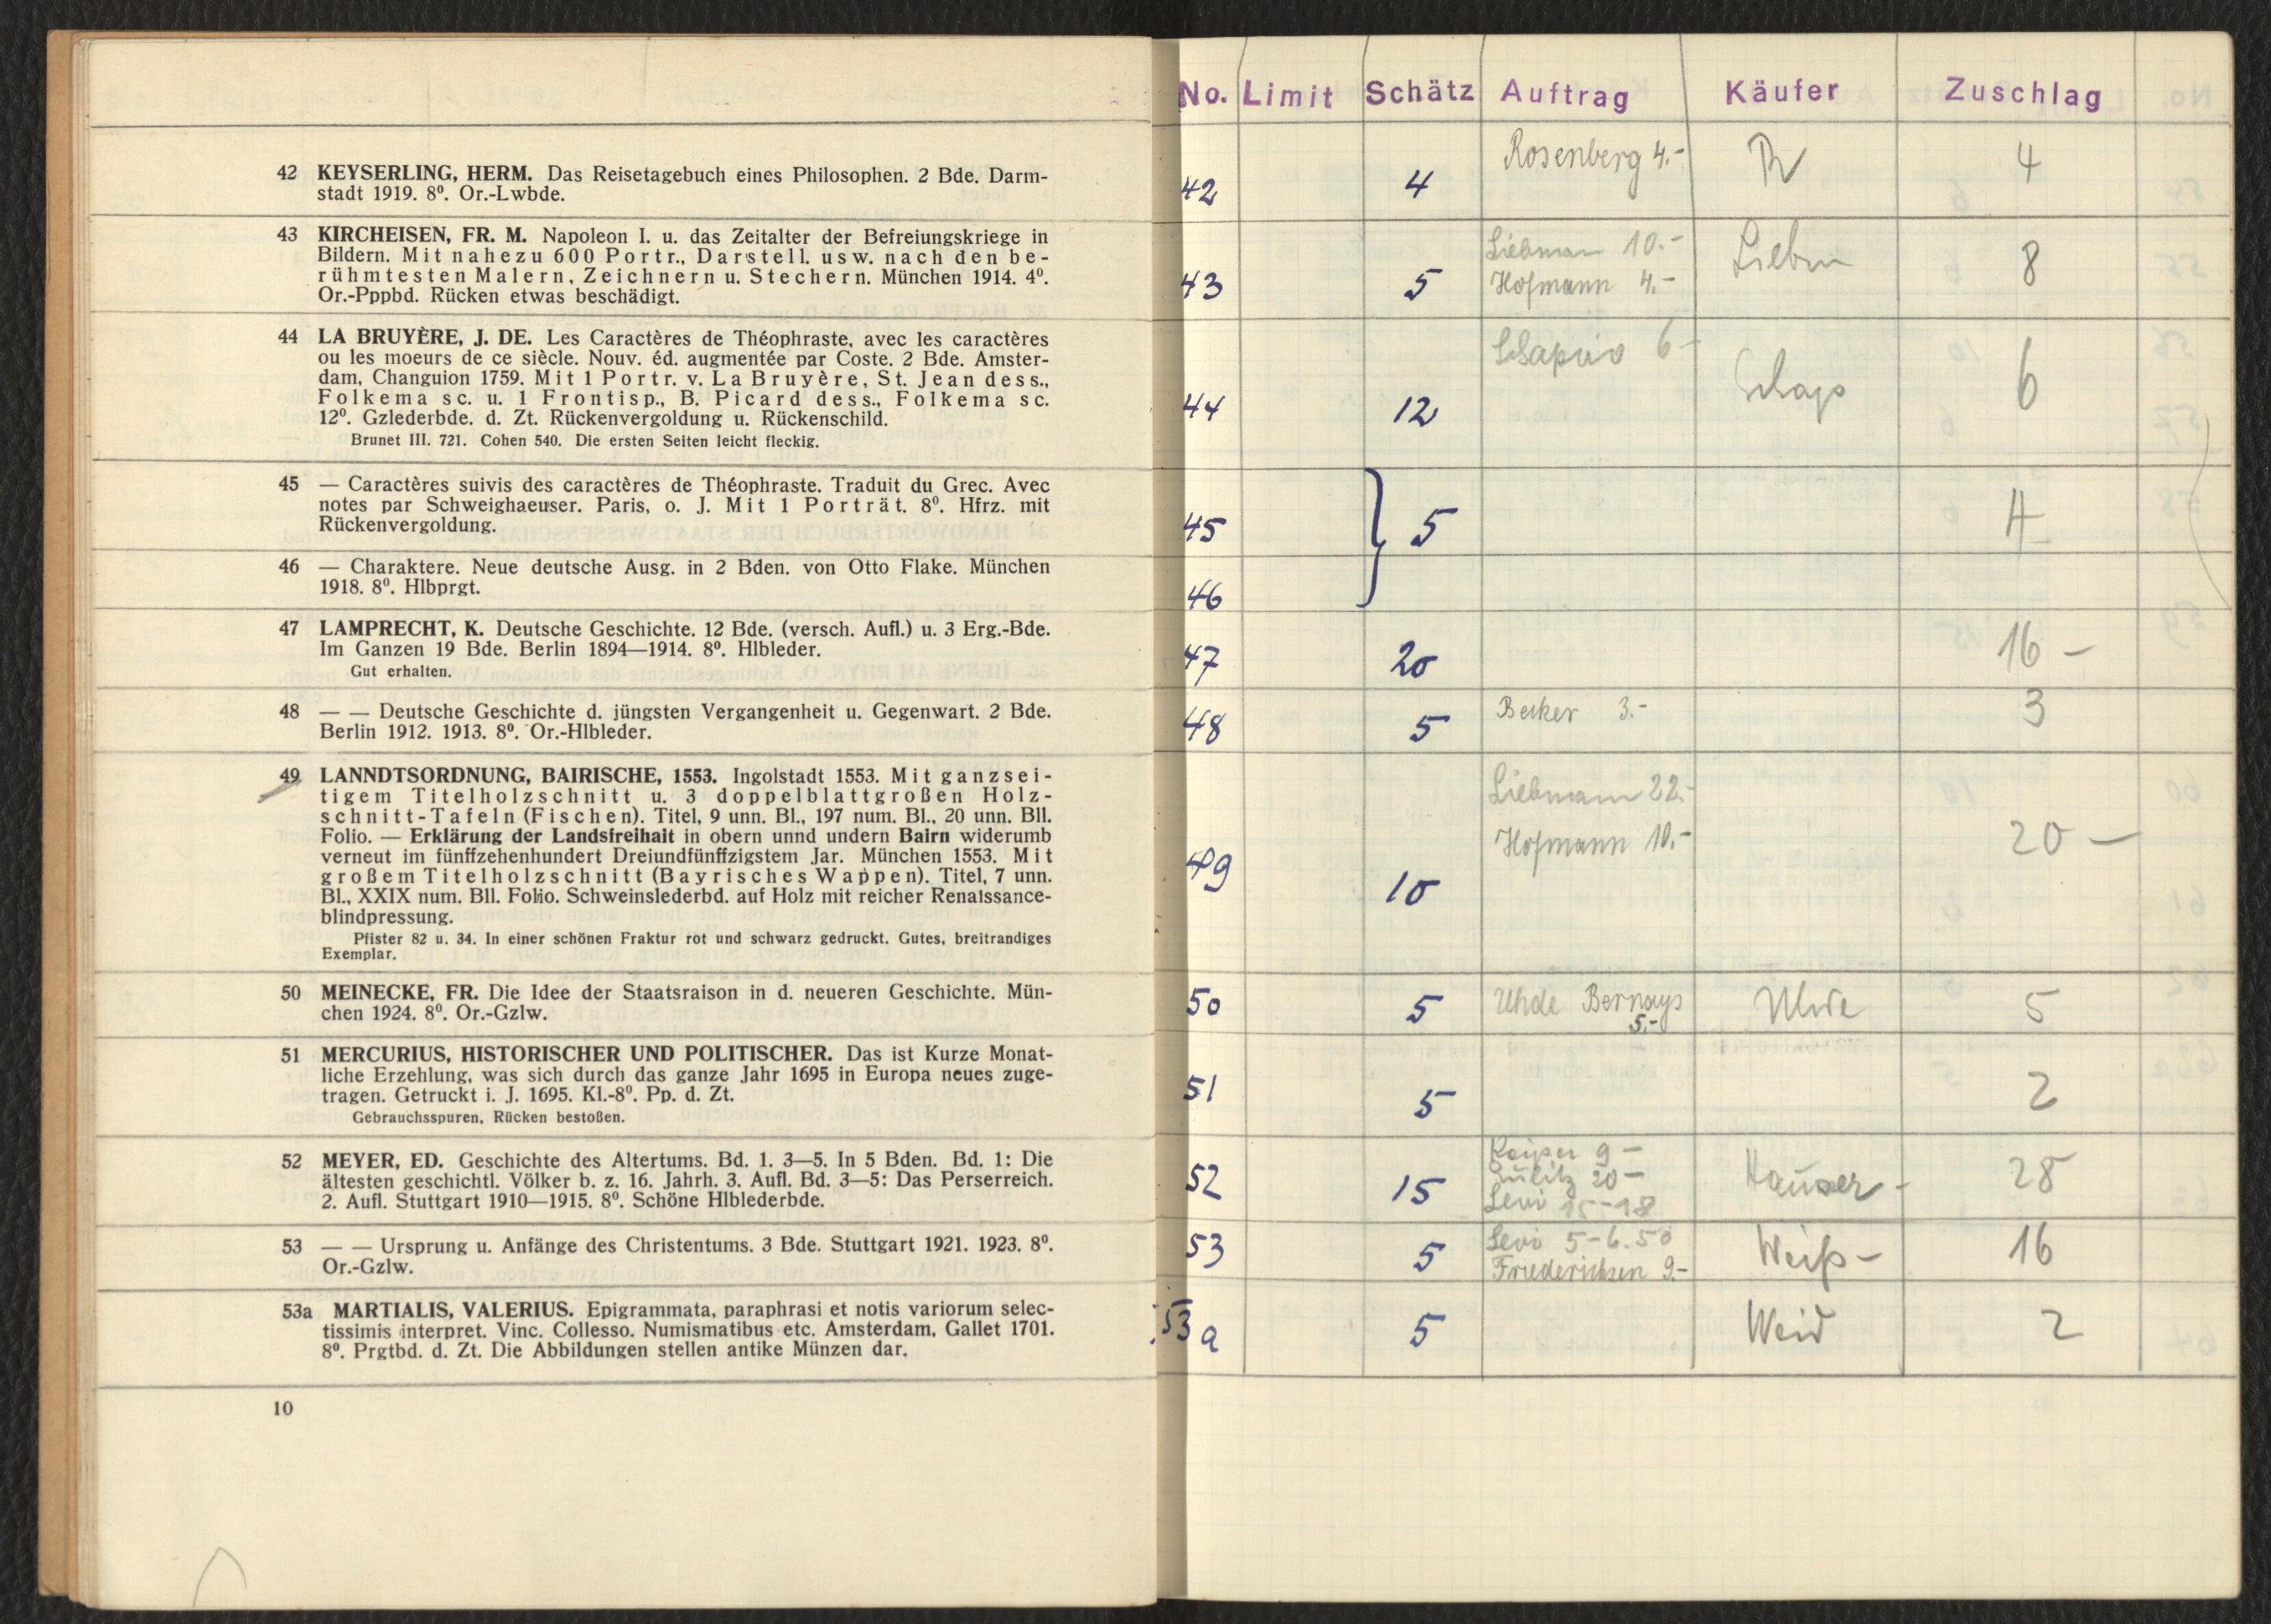 42 KEYSERLING, HERM. Das Reisetagebuch eines Philosophen. 2 Bde. Darm-
stadt 1919. 8⁰. Or.-Lwbde.
43 KIRCHEISEN, FR. M. Napoleon I. u. das Zeitalter der Befreiungskriege in
Bildern. Mit nahezu 600 Portr., Darstell. usw. nach den be-
rühmtesten Malern, Zeichnern u. Stechern. München 1914. 4⁰.
Or.-Pppbd. Rücken etwas beschädigt.
44 LA BRUYÈRE, J. DE. Les Caractères de Théophraste, avec les caractères
ou les moeurs de ce siècle. Nouv. éd. augmentée par Coste. 2 Bde. Amster-
dam, Changuion 1759. Mit 1 Portr. v. La Bruyère, St. Jean dess.,
Folkema sc. u. 1 Frontisp., B. Picard dess., Folkema sc.
12⁰. Gzlederbde. d. Zt. Rückenvergoldung u. Rückenschild.
Brunet III. 721. Cohen 540. Die ersten Seiten leicht fleckig.
45 — Caractères suivis des caractères de Théophraste. Traduit du Grec. Avec
notes par Schweighaeuser. Paris, o. J. Mit 1 Porträt. 8⁰. Hfrz. mit
Rückenvergoldung.
46 — Charaktere. Neue deutsche Ausg. in 2 Bden. von Otto Flake. München
1918. 8⁰. Hlbprgt.
47 LAMPRECHT, K. Deutsche Geschichte. 12 Bde. (versch. Aufl.) u. 3 Erg.-Bde.
Im Ganzen 19 Bde. Berlin 1894—1914. 8⁰. Hlbleder.
Gut erhalten.
48 — — Deutsche Geschichte d. jüngsten Vergangenheit u. Gegenwart. 2 Bde.
Berlin 1912. 1913. 8⁰. Or.-Hlbleder.
49 LANNDTSORDNUNG, BAIRISCHE, 1553. Ingolstadt 1553. Mit ganzsei-
tigem Titelholzschnitt u. 3 doppelblattgroßen Holz-
schnitt-Tafeln (Fischen). Titel, 9 unn. Bl., 197 num. Bl., 20 unn. Bll.
Folio. — Erklärung der Landsfreihait in obern unnd undern Bairn widerumb
verneut im fünffzehenhundert Dreiundfünffzigstem Jar. München 1553. Mit
großem Titelholzschnitt (Bayrisches Wappen). Titel, 7 unn.
Bl., XXIX num. Bll. Folio. Schweinslederbd. auf Holz mit reicher Renaissance-
blindpressung.
Pfister 82 u. 34. In einer schönen Fraktur rot und schwarz gedruckt. Gutes, breitrandiges
Exemplar.
50 MEINECKE, FR. Die Idee der Staatsraison in d. neueren Geschichte. Mün-
chen 1924. 8⁰. Or.-Gzlw.
51 MERCURIUS, HISTORISCHER UND POLITISCHER. Das ist Kurze Monat-
liche Erzehlung, was sich durch das ganze Jahr 1695 in Europa neues zuge-
tragen. Getruckt i. J. 1695. Kl.-8⁰. Pp. d. Zt.
Gebrauchsspuren, Rücken bestoßen.
52 MEYER, ED. Geschichte des Altertums. Bd. 1. 3—5. In 5 Bden. Bd. 1: Die
ältesten geschichtl. Völker b. z. 16. Jahrh. 3. Aufl. Bd. 3—5: Das Perserreich.
2. Aufl. Stuttgart 1910—1915. 8⁰. Schöne Hlblederbde.
53 — — Ursprung u. Anfänge des Christentums. 3 Bde. Stuttgart 1921. 1923. 8⁰.
Or.-Gzlw.
53a MARTIALIS, VALERIUS. Epigrammata, paraphrasi et notis variorum selec-
tissimis interpret. Vinc. Collesso. Numismatibus etc. Amsterdam, Gallet 1701.
8⁰. Prgtbd. d. Zt. Die Abbildungen stellen antike Münzen dar.
10
No. Limit Schätz Auftrag Käufer Zuschlag
42 4 Rosenberg 4.- 4
43 5 Liebmann 10.- 8
Hofmann 4.-
44 12 Schapiro 6- Schap 6
45 5 4
46
47 20 16 —
48 5 Becker 3.- 3
49 10 Liebmann 22.- 20 —
Hofmann 10.-
50 5 Uhde Bernays 5.- Uhde 5
51 5 2
52 15 9 — 28
20 —
Levi 15-18
53 5 Levi 5-6.50 Weiß — 16
Friederichsen 9.-
53a 5 Weiß 2